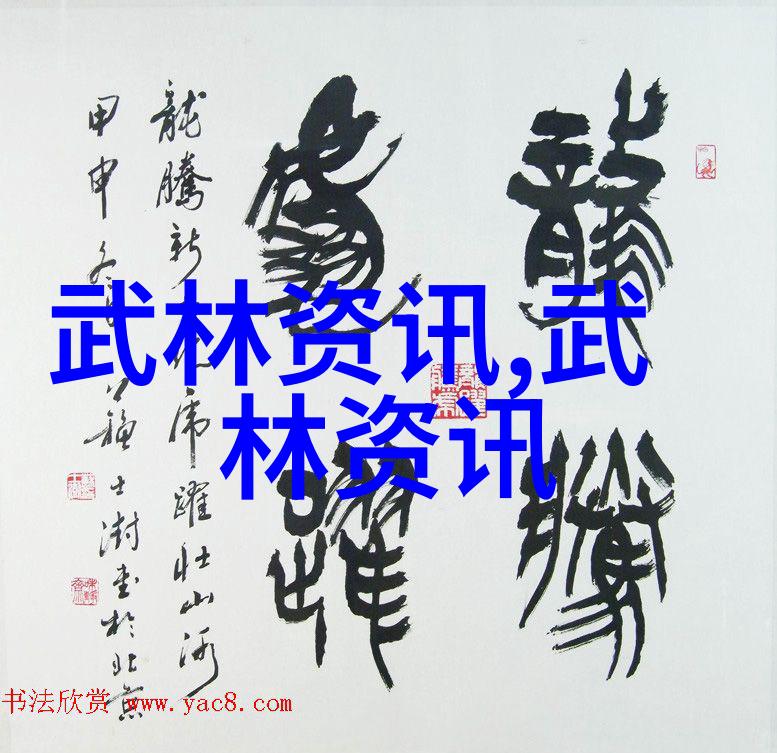 龍騰
虎躍
龍騰新 虎躍壯山河
甲申冬 蘇士澍書於北京
武林资讯,武
林资讯
书法欣赏 www.yac8.com